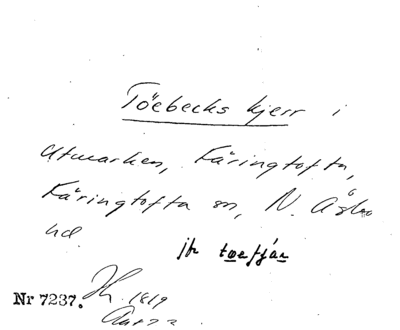 Töebecks kjerr i
Utmarken, Käringtofta,
Käringtofta sn, N. Åsbo
hd.
jfr
Nr 7237. Jh. 1819